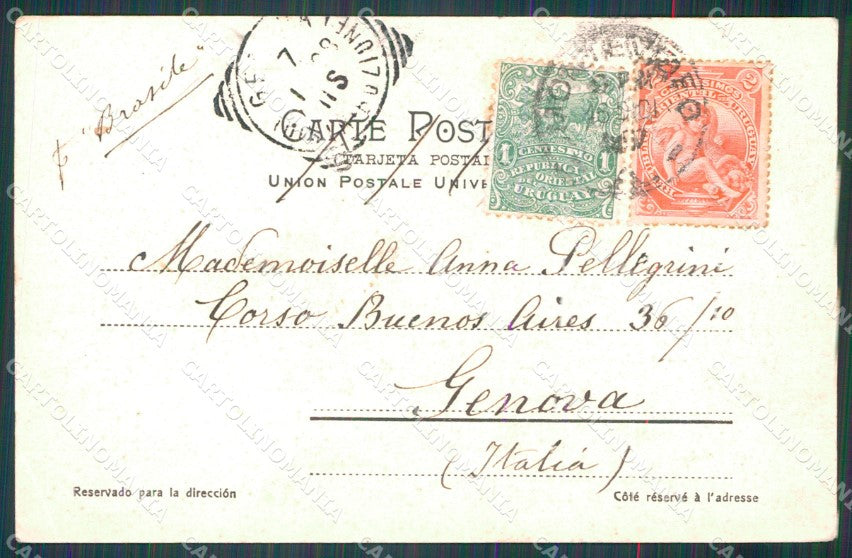 p "Brasile"
CARTE POST
(TARJETA POSTAL
UNION POSTALE UNIVE
1 CENTESIMO 1
REPUBLICA
ORIENTAL
URUGUAY
2
CENTESIMOS
REPUBLICA ORIENTAL DEL URUGUAY
Mademoiselle Anna Pellegrini
Corso Buenos Aires 36/10
Genova
(Italia)
Reservado para la dirección
Côté réservé à l'adresse
CARTOLINOMANIA